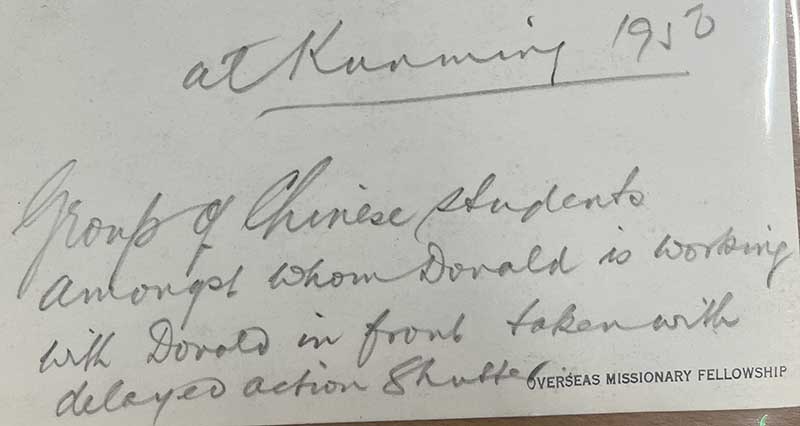 at Kunming 1950
Group of Chinese students
amongst whom Donald is working
with Donald in front taken with
delayed action Shutter.
OVERSEAS MISSIONARY FELLOWSHIP